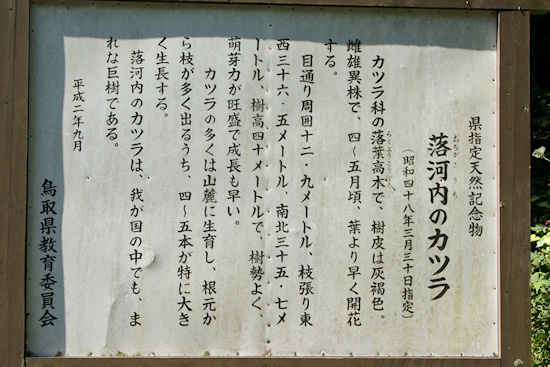 県指定天然記念物
落河内のカツラ
おちがうち
(昭和四十八年三月三十日指定)
カツラ科の落葉高木で、樹皮は灰褐色。
らくようこうぼく
雌雄異株で、四〜五月頃、葉より早く開花
する。
目通り周囲十二・九メートル、枝張り東
西三十六・五メートル、南北三十五・七メ
ートル、樹高四十メートルで、樹勢よく、
萌芽力が旺盛で成長も早い。
カツラの多くは山麓に生育し、根元か
ら枝が多く出るうち、四〜五本が特に大き
く生長する。
落河内のカツラは、我が国の中でも、ま
れな巨樹である。
平成二年九月
鳥取県教育委員会